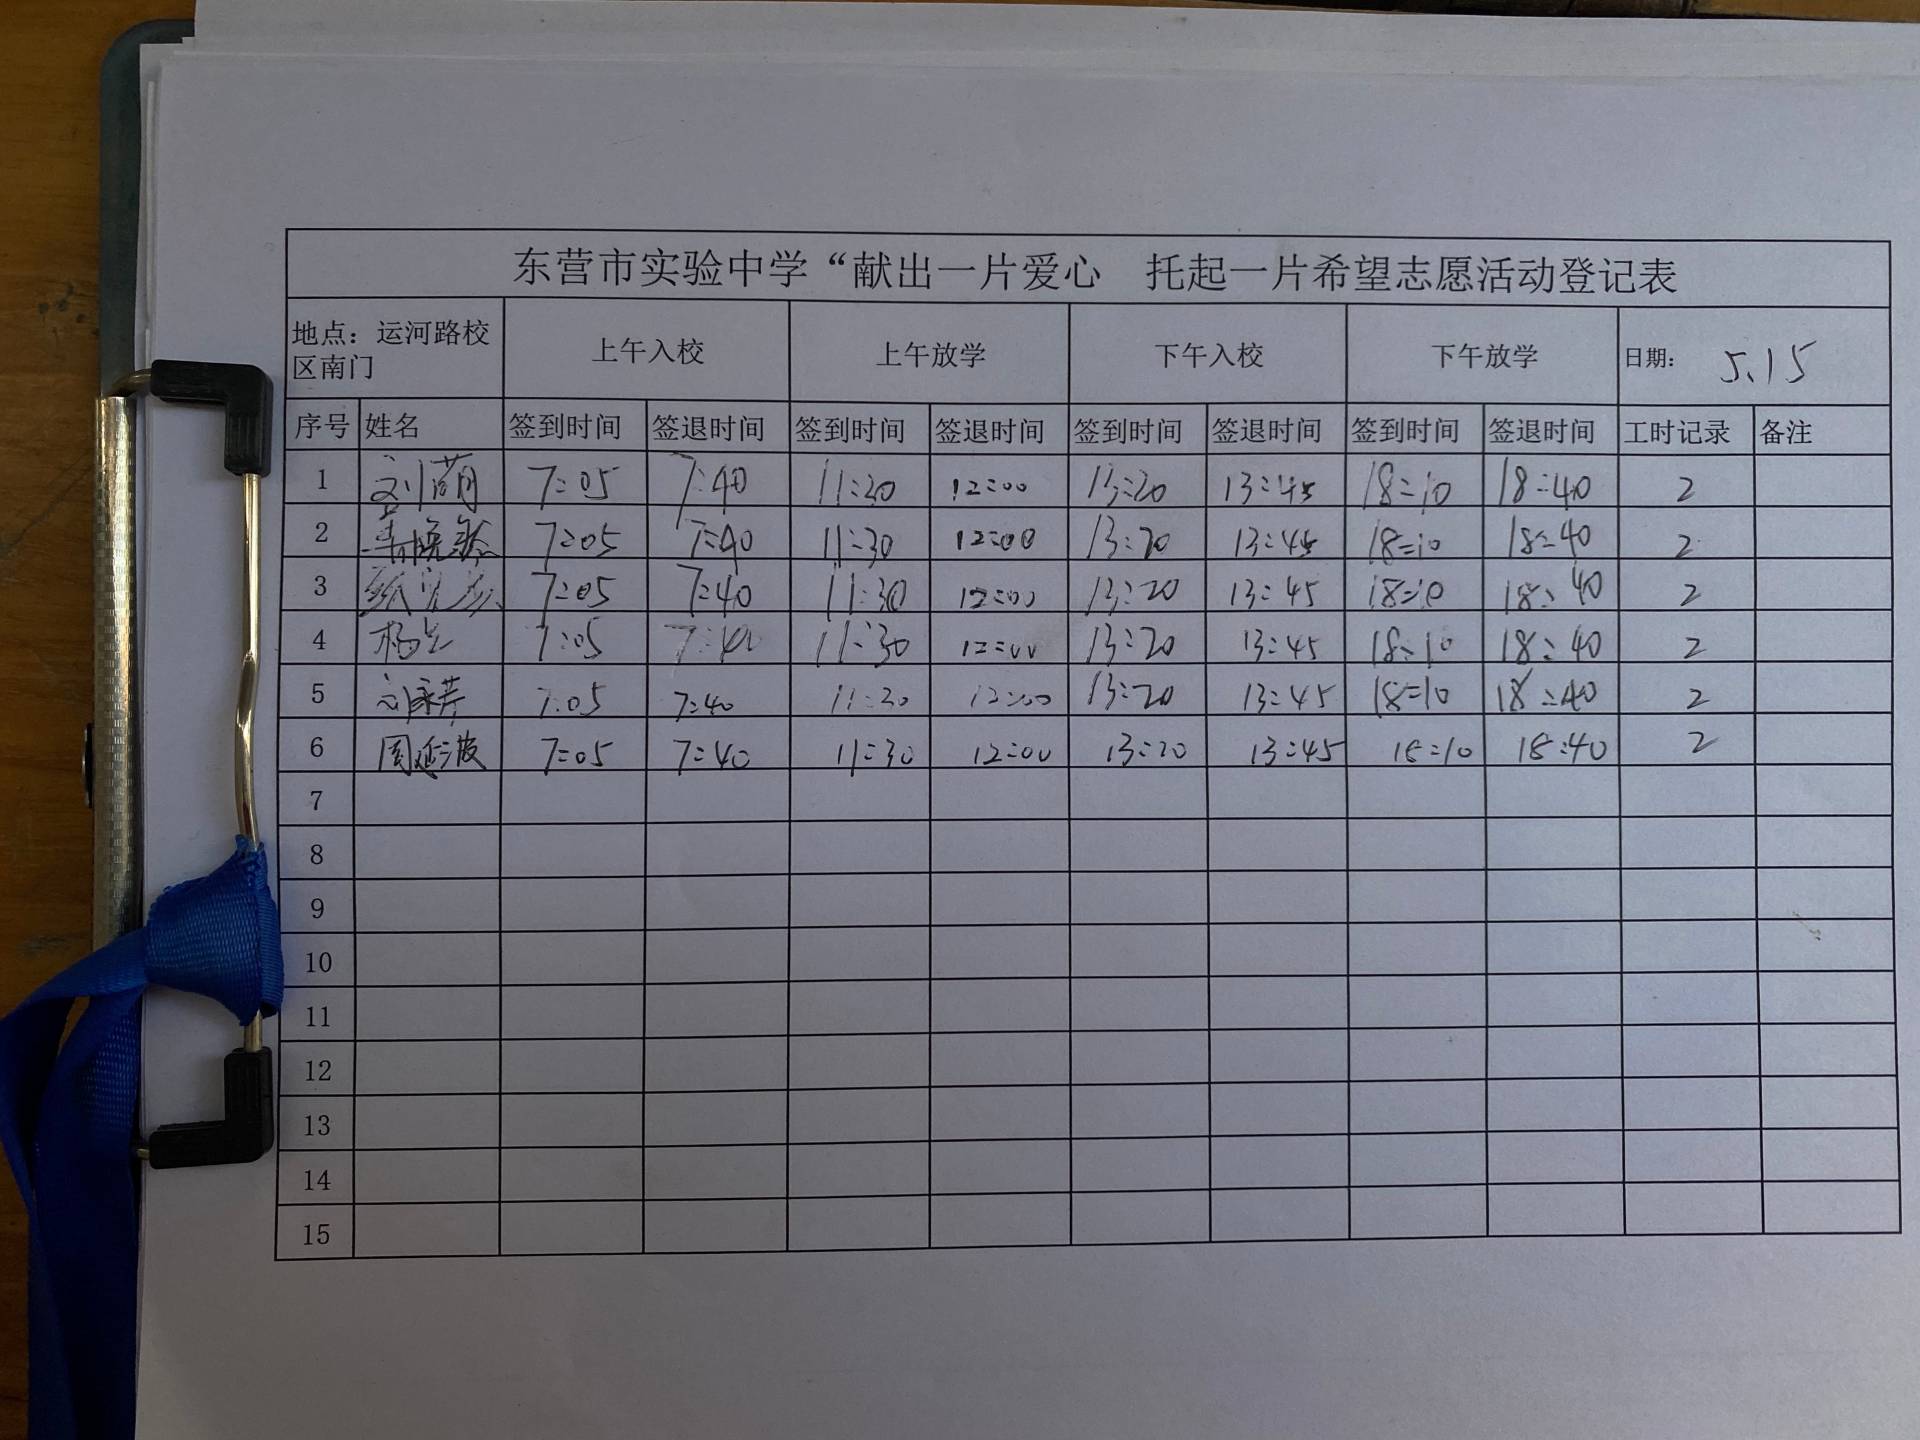 东营市实验中学“献出一片爱心 托起一片希望志愿活动登记表
地点：运河路校区南门 上午入校 上午放学 下午入校 下午放学 日期： 5.15
序号 姓名 签到时间 签退时间 签到时间 签退时间 签到时间 签退时间 签到时间 签退时间 工时记录 备注
1 刘萌 7:05 7:40 11:30 12:00 13:20 13:45 18:10 18:40 2
2 7:05 7:40 11:30 12:00 13:20 13:45 18:10 18:40 2
3 7:05 7:40 11:30 12:00 13:20 13:45 18:10 18:40 2
4 杨 7:05 7:40 11:30 12:00 13:20 13:45 18:10 18:40 2
5 7:05 7:40 11:30 12:00 13:20 13:45 18:10 18:40 2
6 周延波 7:05 7:40 11:30 12:00 13:20 13:45 18:10 18:40 2
7
8
9
10
11
12
13
14
15